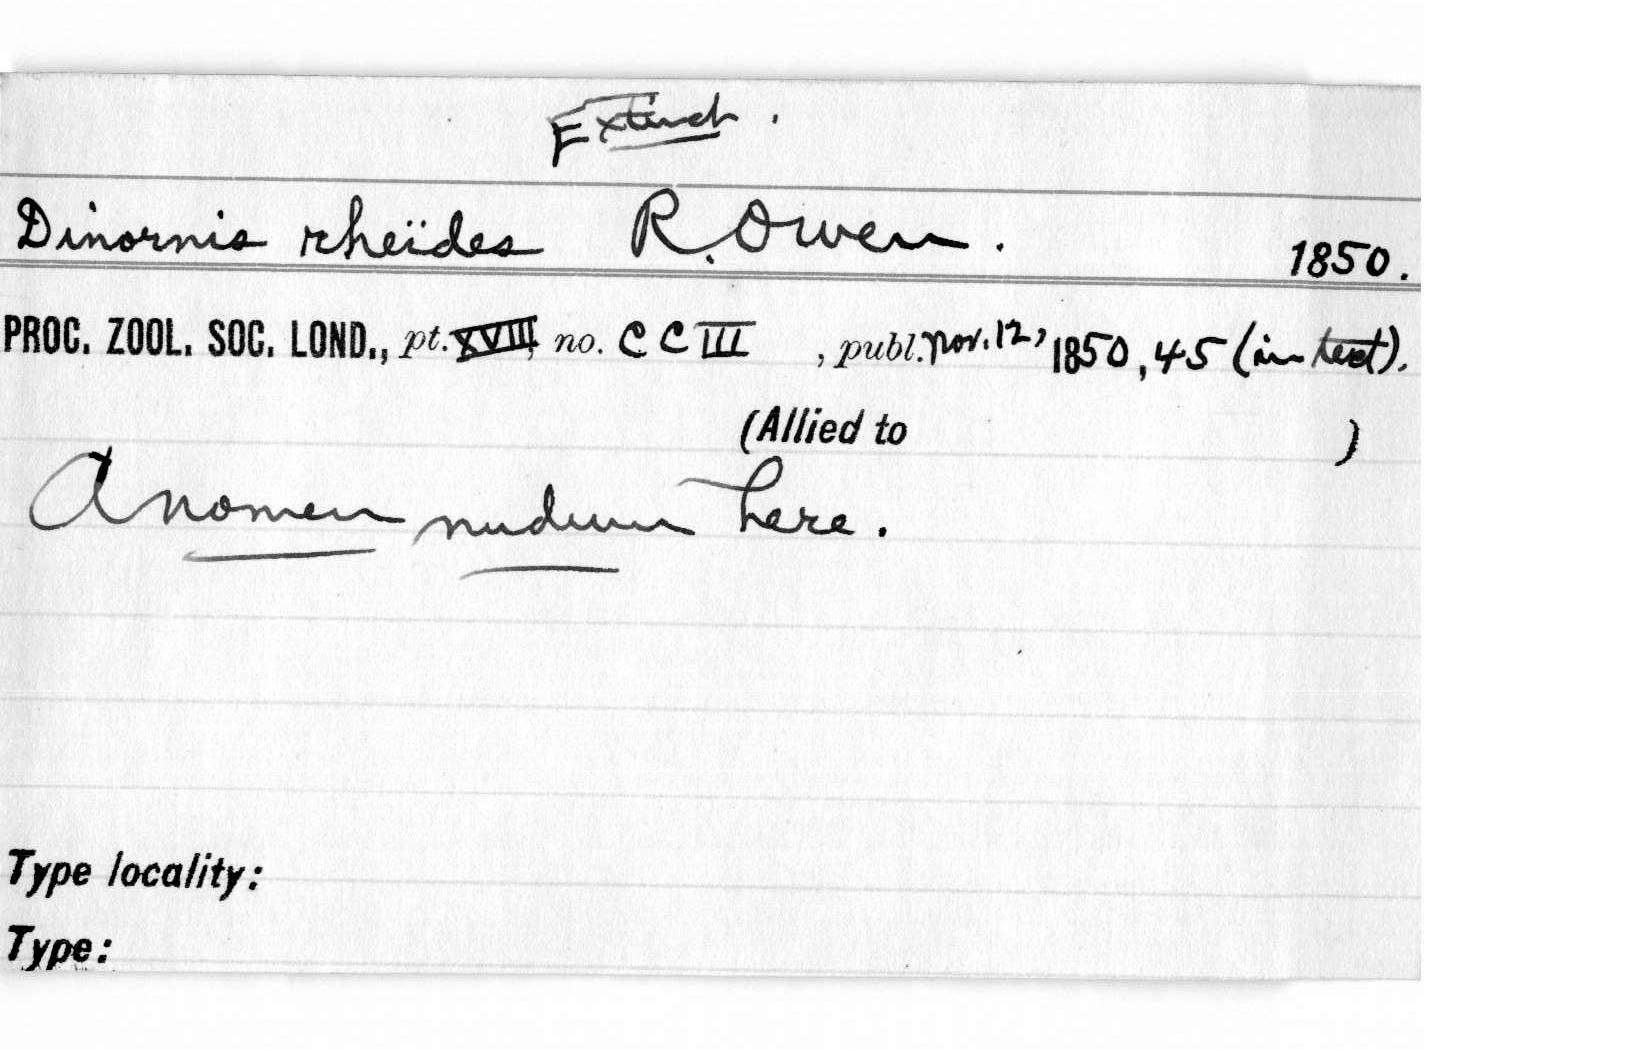 Extinct.
Dinornis rheïdes R. Owen. 1850.
PROC. ZOOL. SOC. LOND., pt. XVIII, no. CCIII, publ. Nov. 12, 1850, 45 (in text).
(Allied to )
A nomen nudum here.
Type locality:
Type: